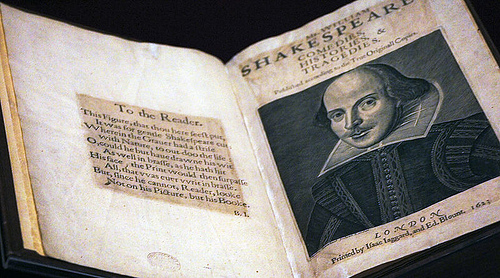 To the Reader.
This Figure, that thou here seest put,
It was for gentle Shakespeare cut;
Wherein the Grauer had a strife
with Nature, to out-doo the life:
O, could he but haue drawne his wit
As well in brasse, as he hath hit
His face; the Print would then surpasse
All, that was euer writ in brasse.
But, since he cannot, Reader, looke
Not on his Picture, but his Booke.
B. I.
MR. WILLIAM
SHAKESPEARES
COMEDIES,
HISTORIES, &
TRAGEDIES.
Published according to the True Originall Copies.
LONDON
Printed by Isaac Iaggard, and Ed. Blount. 1623